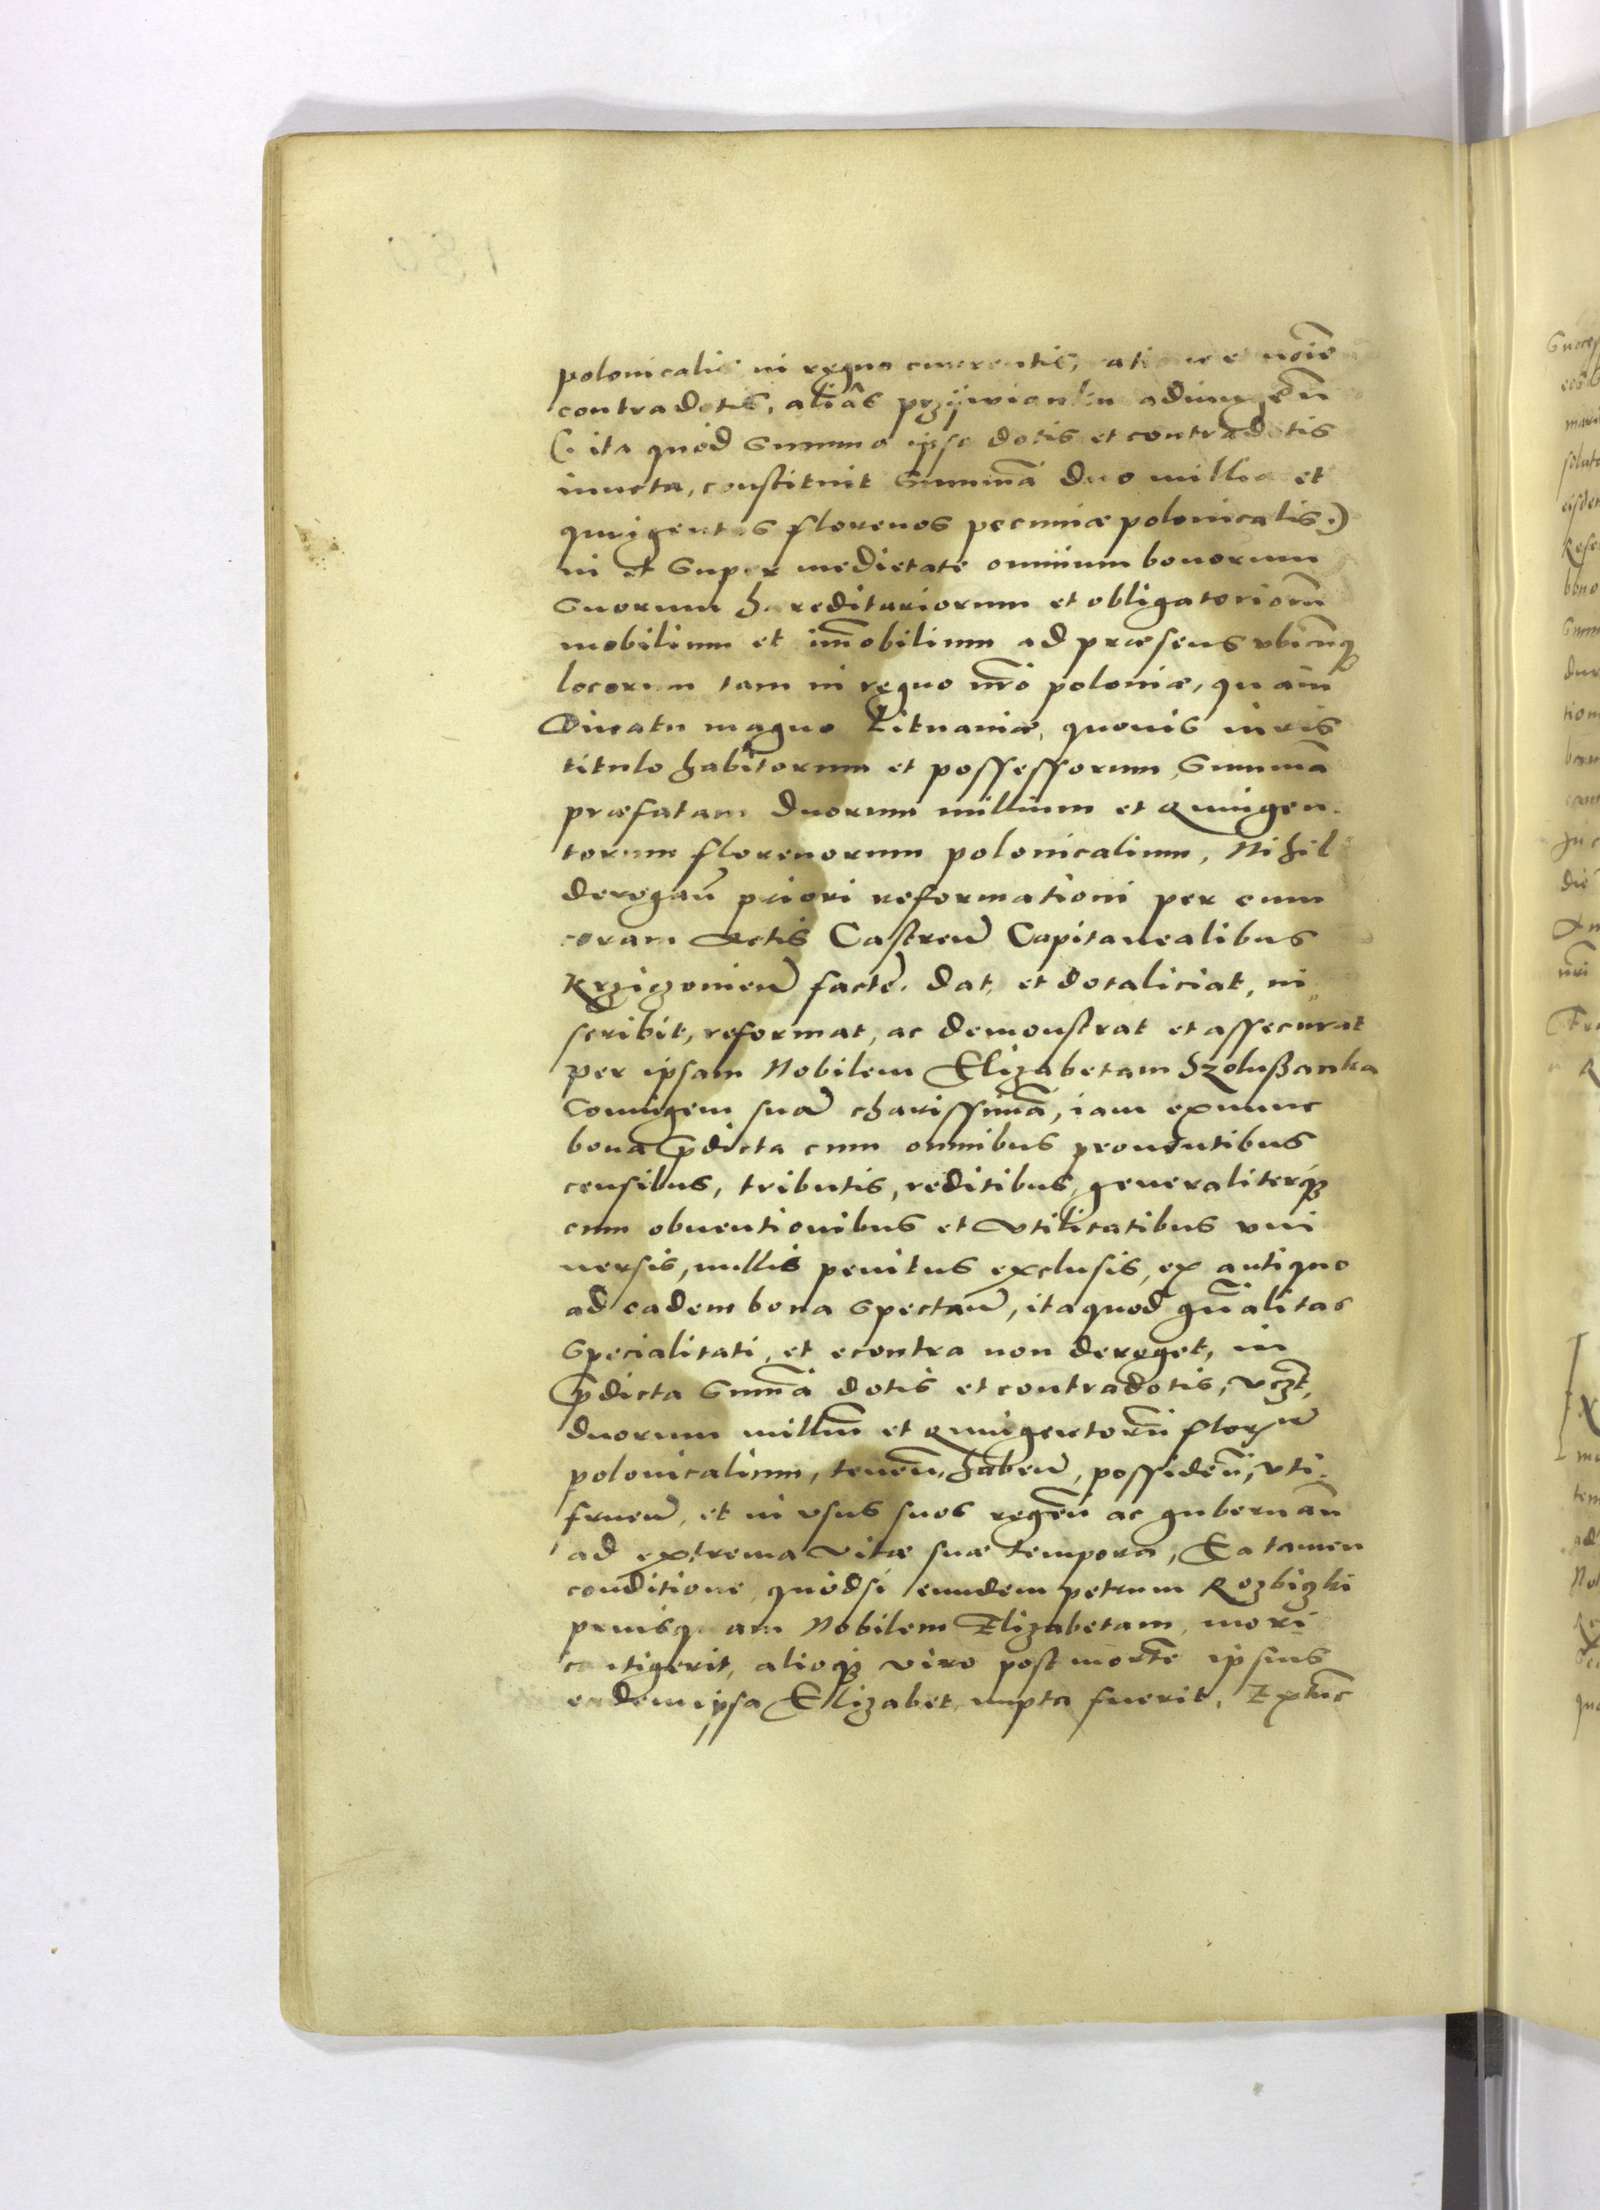 polonicalis in regno currentis, ratione et noīe
contradotis, aliâs przijwianku adiungēn̄
(: ita quòd Summa ipse dotis et contradotis
iuncta, constituit Summā duo millia et
quingentos florenos pecuniæ polonicalis :)
in et super medietate omnium bonorum
suorum hæreditariorum et obligatoriorū
mobilium et im̄obilium ad præsens vbicūq
locorum tam in regno nr̄o poloniæ, quàm
Ducatu magno Lituaniæ, quouis iuris
titulo habitorum et possessorum, Summā
præfatam duorum millium et Quingen-
torum florenorum polonicalium, Nihil
derogan̄ priori reformationi per eum
coram Actis Castren̄ Capitanealibus
Krzizonien̄ factē. dat, et dotaliciat, in-
scribit, reformat, ac demonstrat et assecurat
per ipsam Nobilem Elizabetam Szolußanka
Coniugem suā charissimā, iam exnunc
bona p̄dicta cum omnibus prouentibus
censibus, tributis, reditibus, generaliterq
cum obuentionibus et vtilitatibus vni
uersis, nullis penitus exclusis, ex antiquo
ad eadem bona spectan̄, itaquod gn̄alitas
Specialitati, et econtra non deroget, in
p̄dicta Sum̄a dotis et contradotis, vczt,
duorum milliū et Quingentorū florn̄
polonicalium, tenen̄, haben̄, possiden̄, vti-
fruen̄, et in vsus suos regen̄ ac gubernan̄
ad extrema vitæ suæ tempora, Ea tamen
conditione, quòdsi eundem petrum Rozbiczki
priusquam Nobilem Elizabetam, mori
contigerit, alioq viro post mortē ipsius
eadem ipsa Elizabet nupta fuerit, Extūc